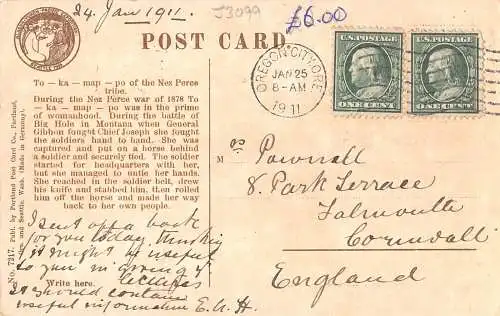 24. Jan 1911.
J3099
£6.00
POST CARD
OREGON CITY ORE
JAN 25
8-AM
1911
U.S. POSTAGE
ONE CENT
U.S. POSTAGE
ONE CENT
To-ka-map-po of the Nez Perce
tribe.
During the Nez Perce war of 1878 To-ka-
map-po was in the prime of
womanhood. During the battle of
Big Hole in Montana when General
Gibbon fought Chief Joseph she fought
the soldiers hand to hand. She was
captured and put on a horse behind
a soldier and securely tied. The soldier
started for headquarters with her,
but she managed to outie her hands.
She reached in the soldier belt, drew
his knife and stabbed him, then rolled
him off the horse and made her way
back to her own people.
No. 7217. Publ. by Portland Post Card Co., Portland,
Ore. and Seattle, Wash. (Made in Germany).
I sent off a book
for you today, thinking
it might be useful
to you in giving
lectures
Write here.
It should contain
useful information E.G.H.
Mrs Pownall
8. Park Terrace
Falmouth
Cornwall
England